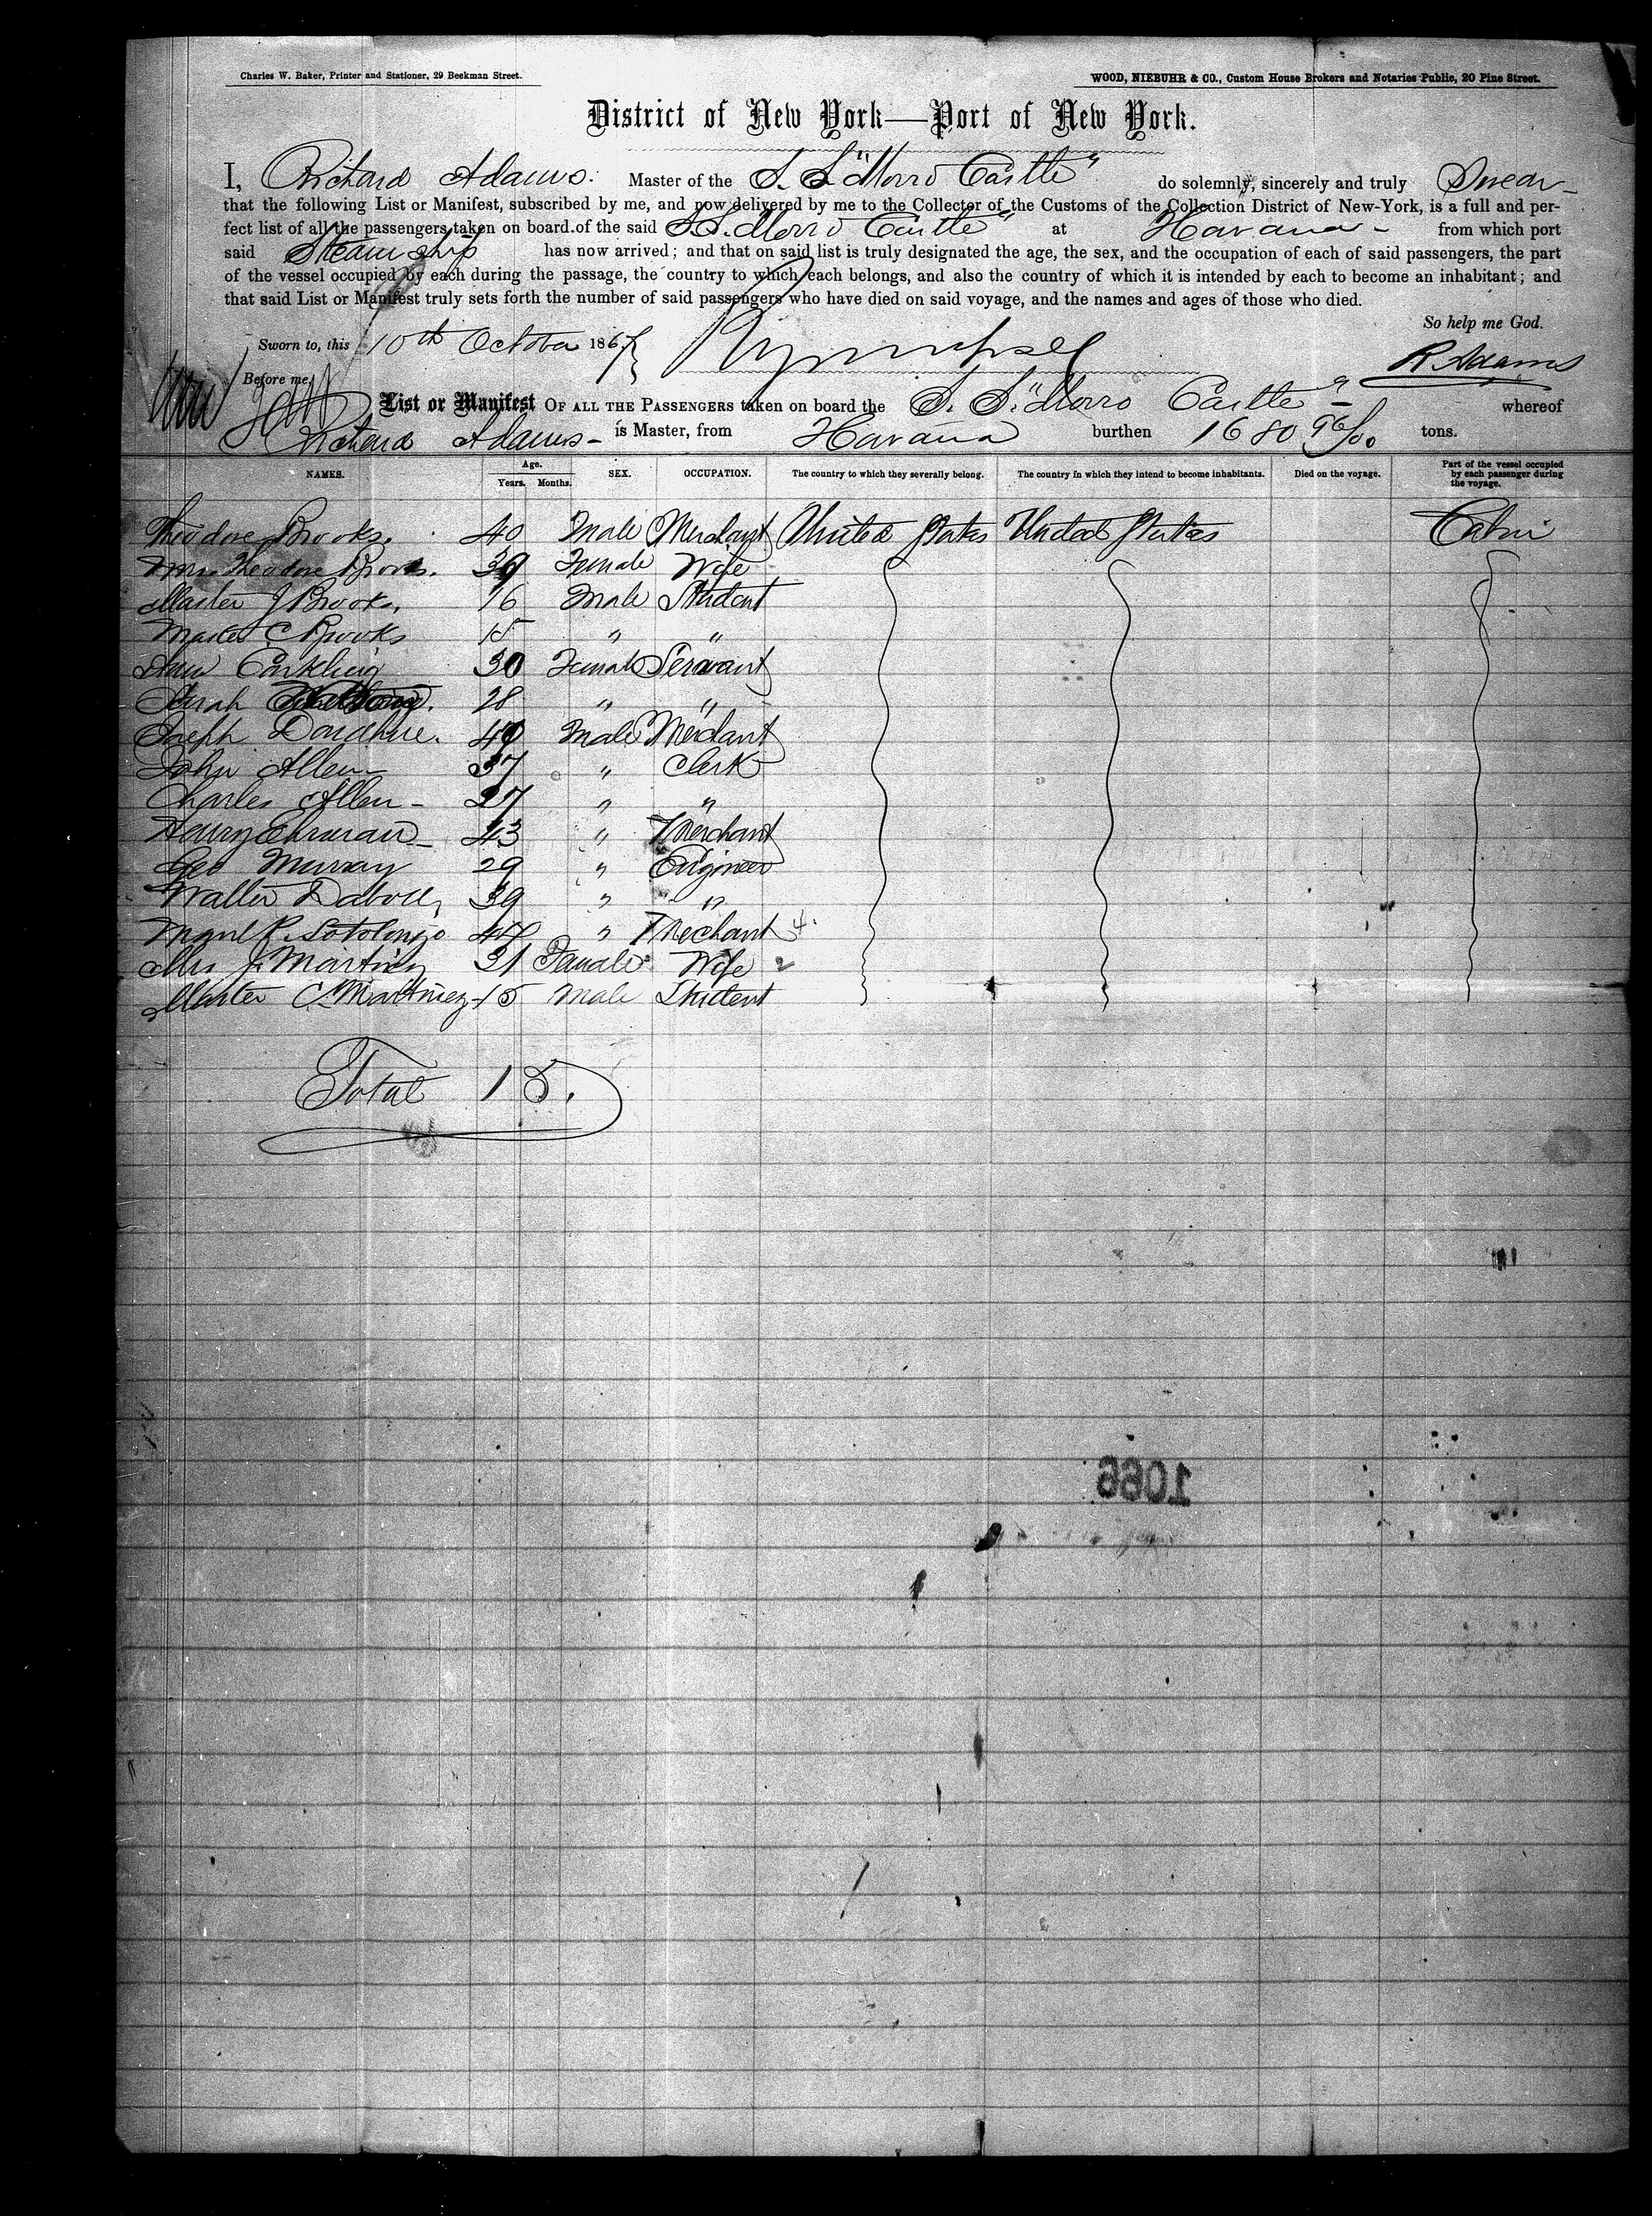 Charles W. Baker, Printer and Stationer, 29 Beekman Street.
WOOD, NIEBUHR & CO., Custom House Brokers and Notaries Public, 20 Pine Street.
District of New York—Port of New York.
I, Richard Adams. Master of the S. S. "Morro Castle" do solemnly, sincerely and truly Swear
that the following List or Manifest, subscribed by me, and now delivered by me to the Collector of the Customs of the Collection District of New-York, is a full and per-
fect list of all the passengers taken on board of the said S. S. Morro Castle" at Havana - from which port
said Steam ship has now arrived; and that on said list is truly designated the age, the sex, and the occupation of each of said passengers, the part
of the vessel occupied by each during the passage, the country to which each belongs, and also the country of which it is intended by each to become an inhabitant; and
that said List or Manifest truly sets forth the number of said passengers who have died on said voyage, and the names and ages of those who died.
So help me God.
Sworn to, this 10th October 1867
R Adams
Before me,
List or Manifest OF ALL THE PASSENGERS taken on board the S. S. "Morro Castle" whereof
Richard Adams - is Master, from Havana burthen 1680 96/00 tons.
NAMES. Age. Years. Months. SEX. OCCUPATION. The country to which they severally belong. The country in which they intend to become inhabitants. Died on the voyage. Part of the vessel occupied by each passenger during the voyage.
Theodore Brooks. 40 Male Merchant United States United States Cabin
Mrs Theodore Brooks. 39 Female Wife
Master J Brooks. 16 Male Student
Master C Brooks 15 " "
30 Female Servant
Sarah 28 " "
Joseph 49 Male Merchant
John Allen 37 " Clerk
Charles Allen - 27 " "
Henry 43 " Merchant
Geo Murray 29 " Engineer
Walter Daboll 39 " "
R. Sotolongo 44 " Merchant 4.
Mrs J. Martinez 31 Female Wife 2
Master C. Martinez 15 Male Student
Total 15.
1066